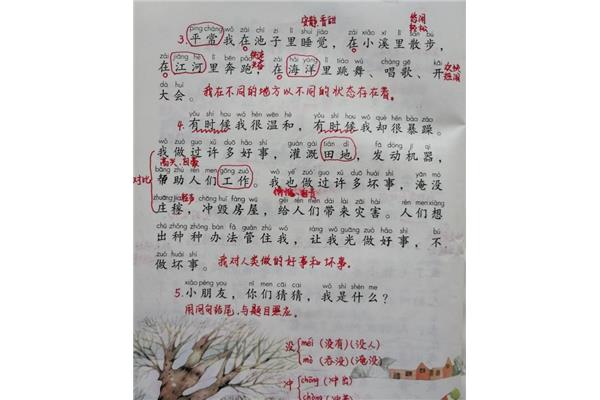 安静香甜
悠闲
轻松
píng cháng wǒ zài chí zi lǐ shuì jiào zài xiǎo xī lǐ sàn bù
3.平常我在池子里睡觉,在小溪里散步,
zài jiāng hé lǐ bēn pǎo zài hǎi yáng lǐ tiào wǔ chàng gē kāi
在江河里奔跑,在海洋里跳舞、唱歌、开
欢快
热闹
dà huì
大会。我在不同的地方以不同的状态存在着。
yǒu shí hou wǒ hěn wēn hé yǒu shí hou wǒ què hěn bào zào
4.有时候我很温和,有时候我却很暴躁。
wǒ zuò guo xǔ duō hǎo shì guàn gài tián dì fā dòng jī qì
我做过许多好事,灌溉田地,发动机器,
对比
bāng zhù rén men gōng zuò wǒ yě zuò guo xǔ duō huài shì yān mò
帮助人们工作。我也做过许多坏事,淹没
zhuāng jia chōng huǐ fáng wū gěi rén men dài lái zāi hài rén men xiǎng
庄稼,冲毁房屋,给人们带来灾害。人们想
chū zhǒng zhǒng bàn fǎ guǎn zhù wǒ ràng wǒ guāng zuò hǎo shì bú
出种种办法管住我,让我光做好事,不
zuò huài shì
做坏事。我对人类做的好事和坏事。
xiǎo péng you nǐ men cāi cai wǒ shì shén me
5.小朋友,你们猜猜,我是什么?
用问句结尾,与题目照应。
没 méi (没有)(没人)
mò (吞没)(淹没)
冲 chōng (冲出)
chòng